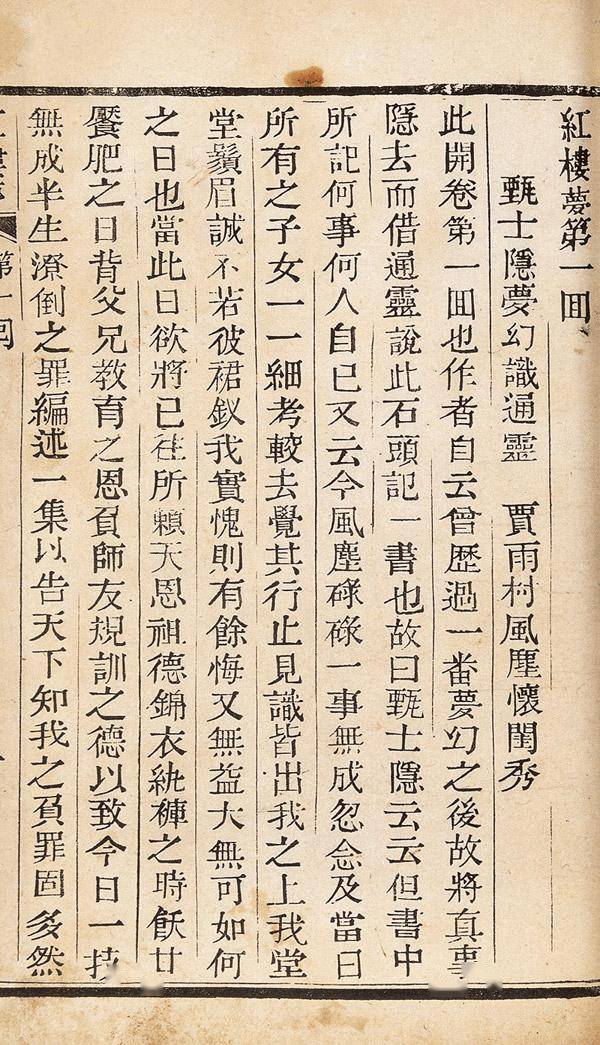 紅樓夢第一囬
甄士隱夢幻識通靈　賈雨村風塵懷閨秀
此開卷第一囬也作者自云曾歷過一番夢幻之後故將真事
隱去而借通靈說此石頭記一書也故曰甄士隱云云但書中
所記何事何人自己又云今風塵碌碌一事無成忽念及當日
所有之子女一一細考較去覺其行止見識皆出我之上我堂
堂鬚眉誠不若彼裙釵我實愧則有餘悔又無益大無可如何
之日也當此日欲將已徃所賴天恩祖德錦衣紈褲之時飫甘
饜肥之日背父兄教育之恩負師友規訓之德以致今日一技
無成半生潦倒之罪編述一集以告天下知我之負罪固多然
第一囬